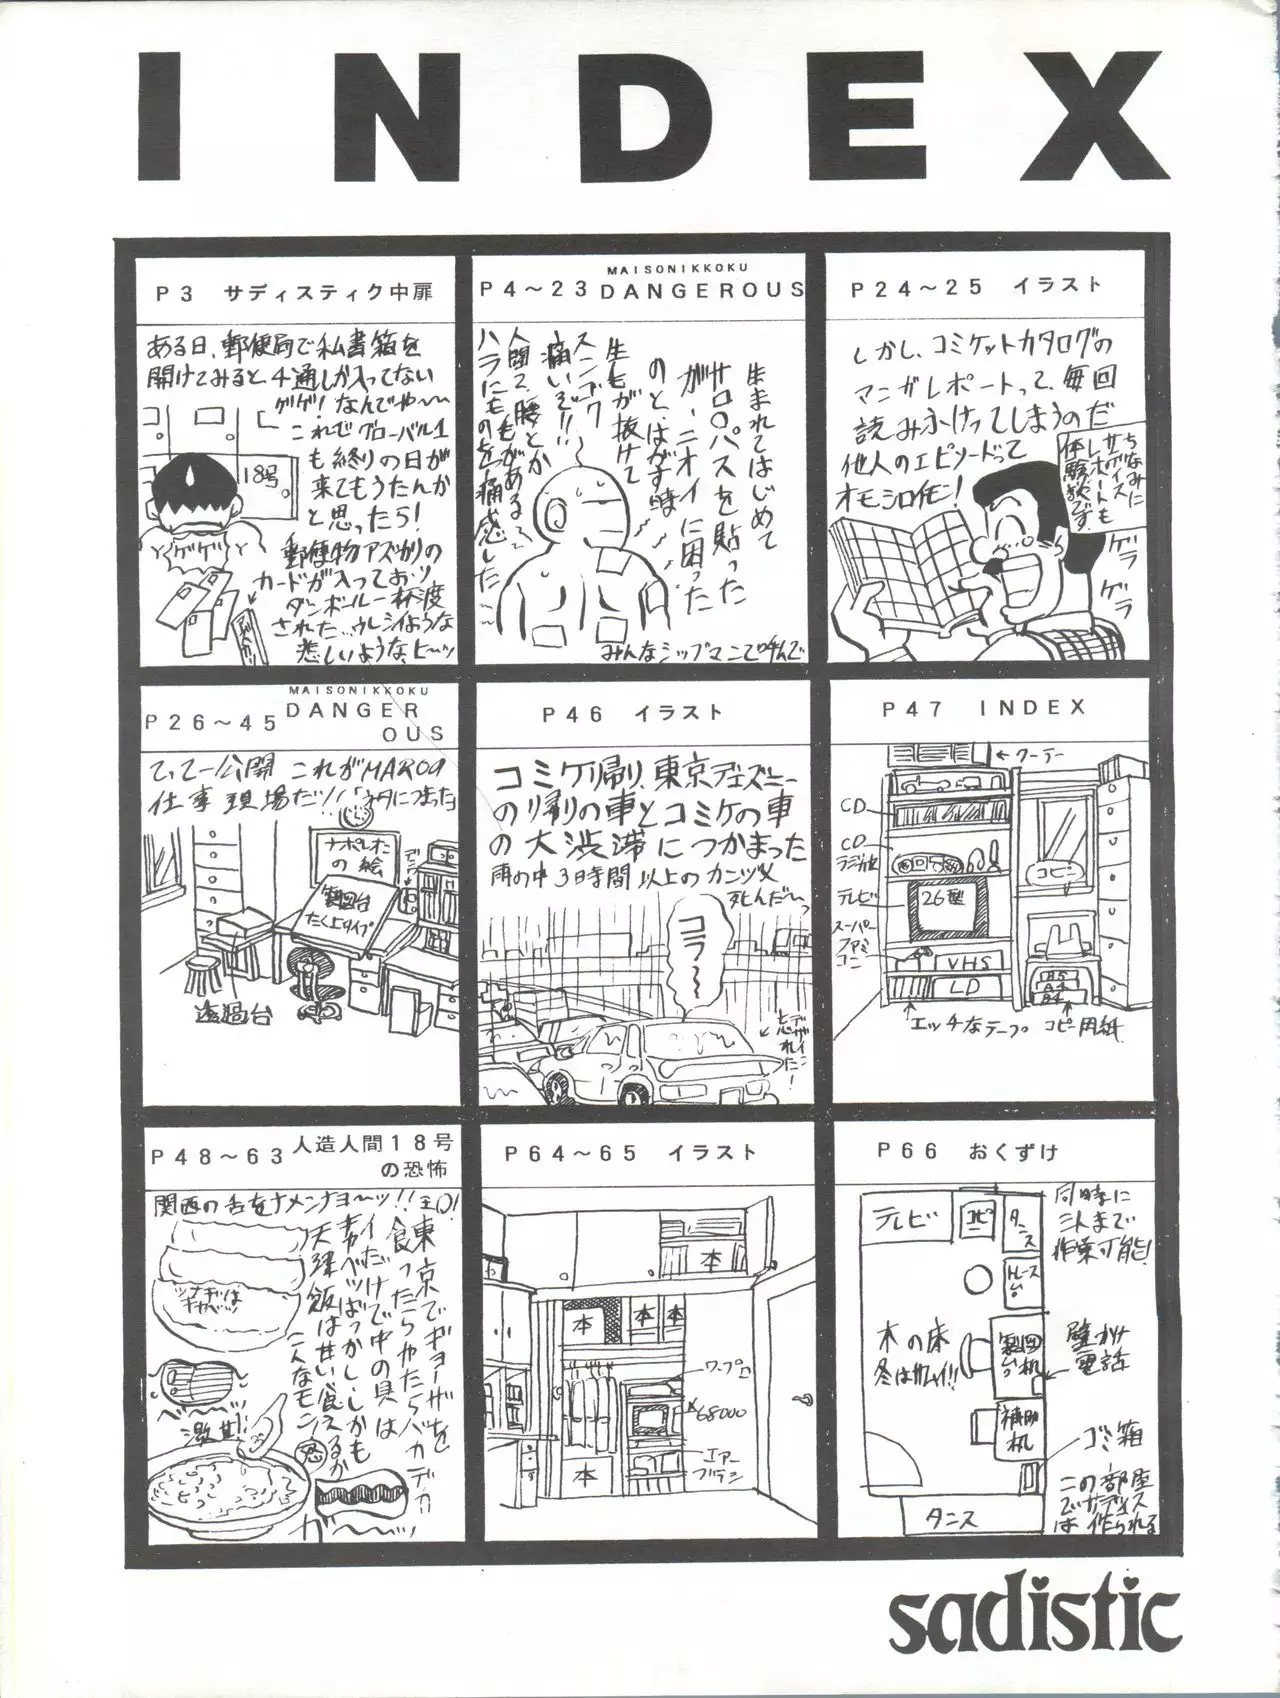 INDEX
P3 サディスティク中扉
ある日、郵便局で私書箱を
開けてみると、4通しか入ってない
ゲゲ！なんでや〜〜
これでグローバル1
も終りの日が
来てもうたんか
と思ったら！
郵便物アズカリの
カードが入っており
ダンボール一杯渡
された…ウレシイような
悲しいような、ヒ〜ッ
18号
ゲゲゲ
MAISONIKKOKU
P4〜23 DANGEROUS
生まれてはじめて
サロンパスを貼った
が、ニオイに困った
のと、はがす時
生毛が抜けて
スンゴク
痛いぞ!!
人間て、腰とか
ハラにものを痛感した〜
みんなシップマンて呼んで
P24〜25 イラスト
しかし、コミケットカタログの
マンガレポートって、毎回
読みふけってしまうのだ
他人のエピソードって
オモシロイモン！
ちなみに
サディスティック
レポートも
体験談です。
ゲラ
ゲラ
MAISONIKKOKU
P26〜45 DANGER
OUS
公開 これがMARO9
仕事現場だッ！
の絵
製図台
たく上タイプ
透過台
P46 イラスト
コミケ帰り、東京ディズニー
の帰りの車とコミケの車
の大渋滞につかまった
雨の中3日時間以上のカンヅメ
死んだ〜っ
コラ〜
P47 INDEX
←クーラー
CD
CD
ラジカセ
テレビ
スーパー
ファミ
コン
26型
VHS
LD
コピー
B5
A4
B4
エッチなテープ
コピー用紙
P48〜63 人造人間18号
の恐怖
関西の舌をナメンナョ〜ッ!!
東京でギョーザを
食ったらやたらバカデカ
イだけで中の具は
キャベツばっかし・しかも
天津飯は甘い
こんなモン
食えるか
激甘
ガ〜〜ッ
P64〜65 イラスト
本
本
本
本
本
ワープロ
68000
エアー
ブラシ
P66 おくずけ
テレビ
コピー
タンス
トレース
台
木の床
冬はサムイ!!
製図
台
机
補助
机
タンス
同時に
三人まで
作業可能！
壁カケ
電話
ゴミ箱
この部屋
でサディス
は作られる
sadistic